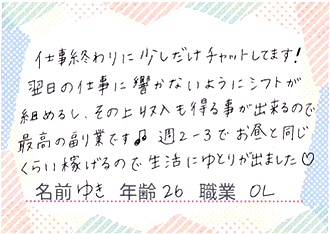 仕事終わりに少しだけチャットしてます!
翌日の仕事に響かないようにシフトが
組めるし、その上収入も得る事が出来るので
最高の副業です♫ 週2-3でお昼と同じ
くらい稼げるので生活にゆとりが出ました♡
名前 ゆき 年齢 26 職業 OL